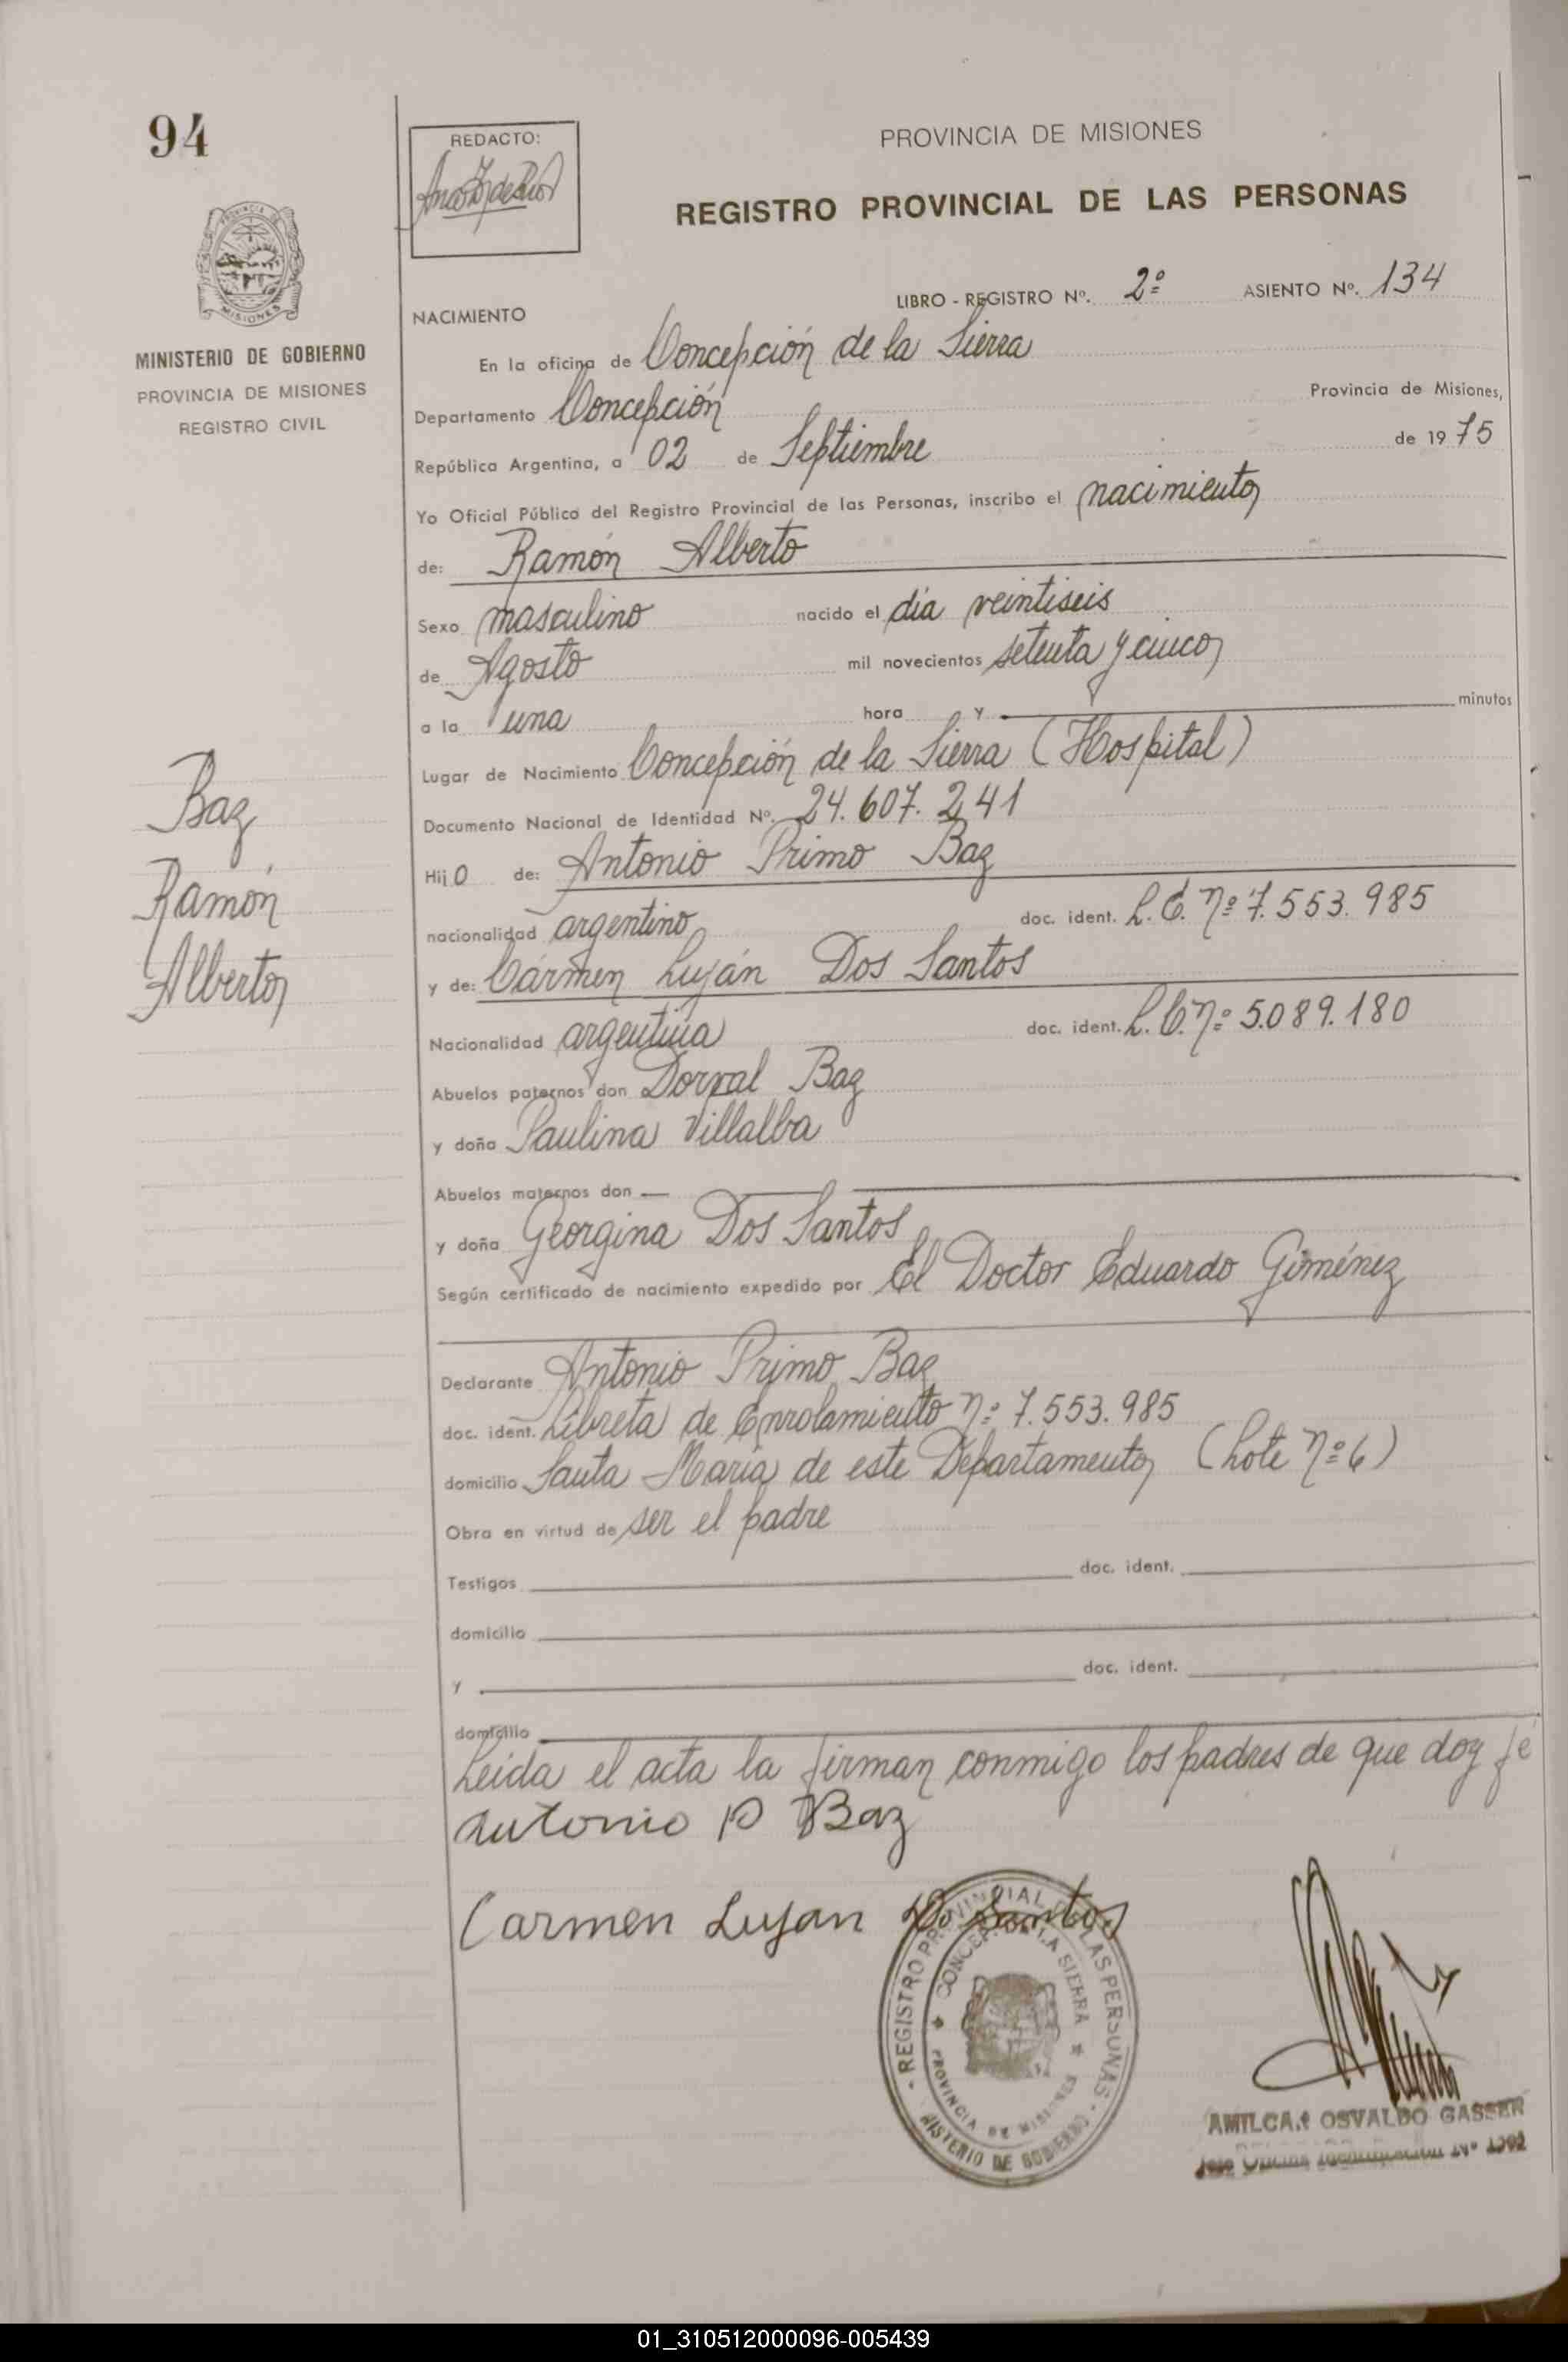 94
REDACTO:
PROVINCIA DE MISIONES
REGISTRO PROVINCIAL DE LAS PERSONAS
LIBRO - REGISTRO Nº. 2º ASIENTO Nº. 134
NACIMIENTO
MINISTERIO DE GOBIERNO
PROVINCIA DE MISIONES
REGISTRO CIVIL
En la oficina de Concepción de la Sierra
Departamento Concepción Provincia de Misiones,
República Argentina, a 02 de Septiembre de 1975
Yo Oficial Público del Registro Provincial de las Personas, inscribo el nacimiento
de: Ramón Alberto
Sexo masculino nacido el día veintiseis
de Agosto mil novecientos setenta y cinco
a la una hora y minutos
Lugar de Nacimiento Concepción de la Sierra (Hospital)
Documento Nacional de Identidad Nº. 24.607.241
Baz
Ramón
Alberto
Hijo de: Antonio Primo Baz
nacionalidad argentino doc. ident. L.E. nº 7.553.985
y de: Cármen Luján Dos Santos
Nacionalidad argentina doc. ident. L.C. nº 5.089.180
Abuelos paternos don Dorval Baz
y doña Paulina Villalba
Abuelos maternos don —
y doña Georgina Dos Santos
Según certificado de nacimiento expedido por El Doctor Eduardo Giménez
Declarante Antonio Primo Baz
doc. ident. Libreta de Enrolamiento nº 7.553.985
domicilio Santa María de este Departamento (Lote nº 6)
Obra en virtud de ser el padre
Testigos doc. ident.
domicilio
y doc. ident.
domicilio
Leida el acta la firman conmigo los padres de que doy fé
Antonio P Baz
Carmen Lujan D. Santos
REGISTRO PROVINCIAL DE LAS PERSONAS
CONCEP. DE LA SIERRA
PROVINCIA DE MISIONES
MINISTERIO DE GOBIERNO
AMILCAR OSVALDO GASSER
Jefe Oficina Identificación Nº
01_310512000096-005439